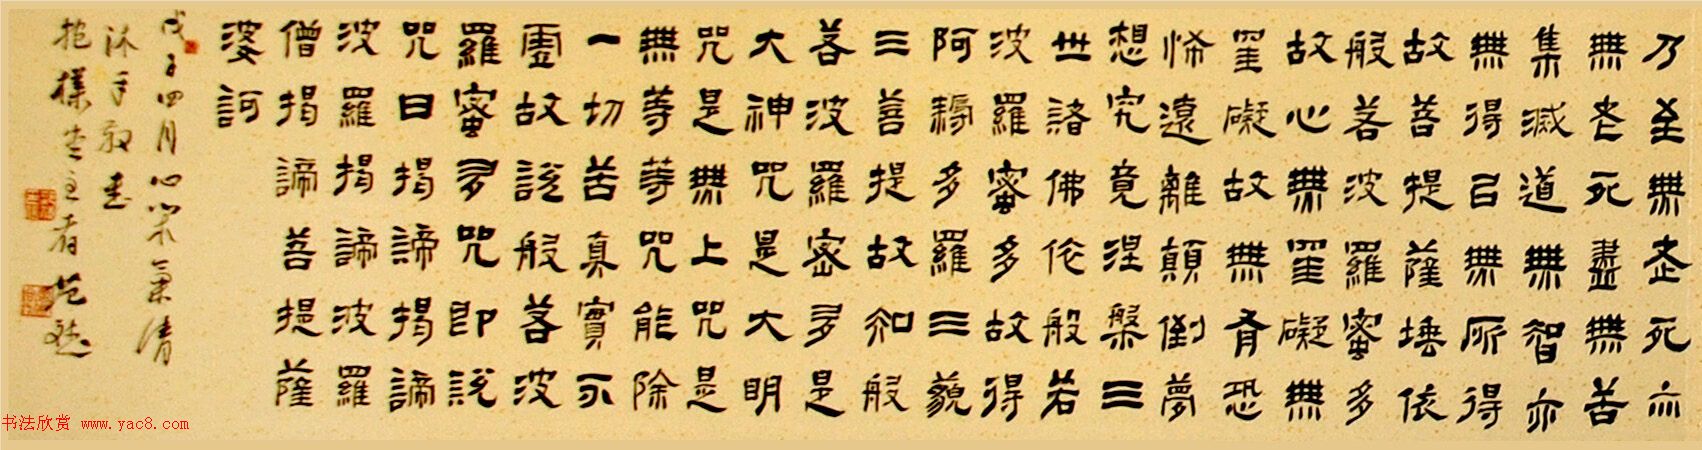 乃至無老死亦
無老死盡無苦
集滅道無智亦
無得以無所得
故菩提薩埵依
般若波羅蜜多
故心無罣礙無
罣礙故無有恐
怖遠離顛倒夢
想究竟涅槃三
世諸佛依般若
波羅蜜多故得
阿耨多羅三藐
三菩提故知般
若波羅密多是
大神咒是大明
咒是無上咒是
無等等咒能除
一切苦真實不
虛故說般若波
羅蜜多咒即說
咒曰揭諦揭諦
波羅揭諦波羅
僧揭諦菩提薩
婆訶
戊子四月心閑氣清
沐手敬書
抱樸堂主者
书法欣赏 www.yac8.com